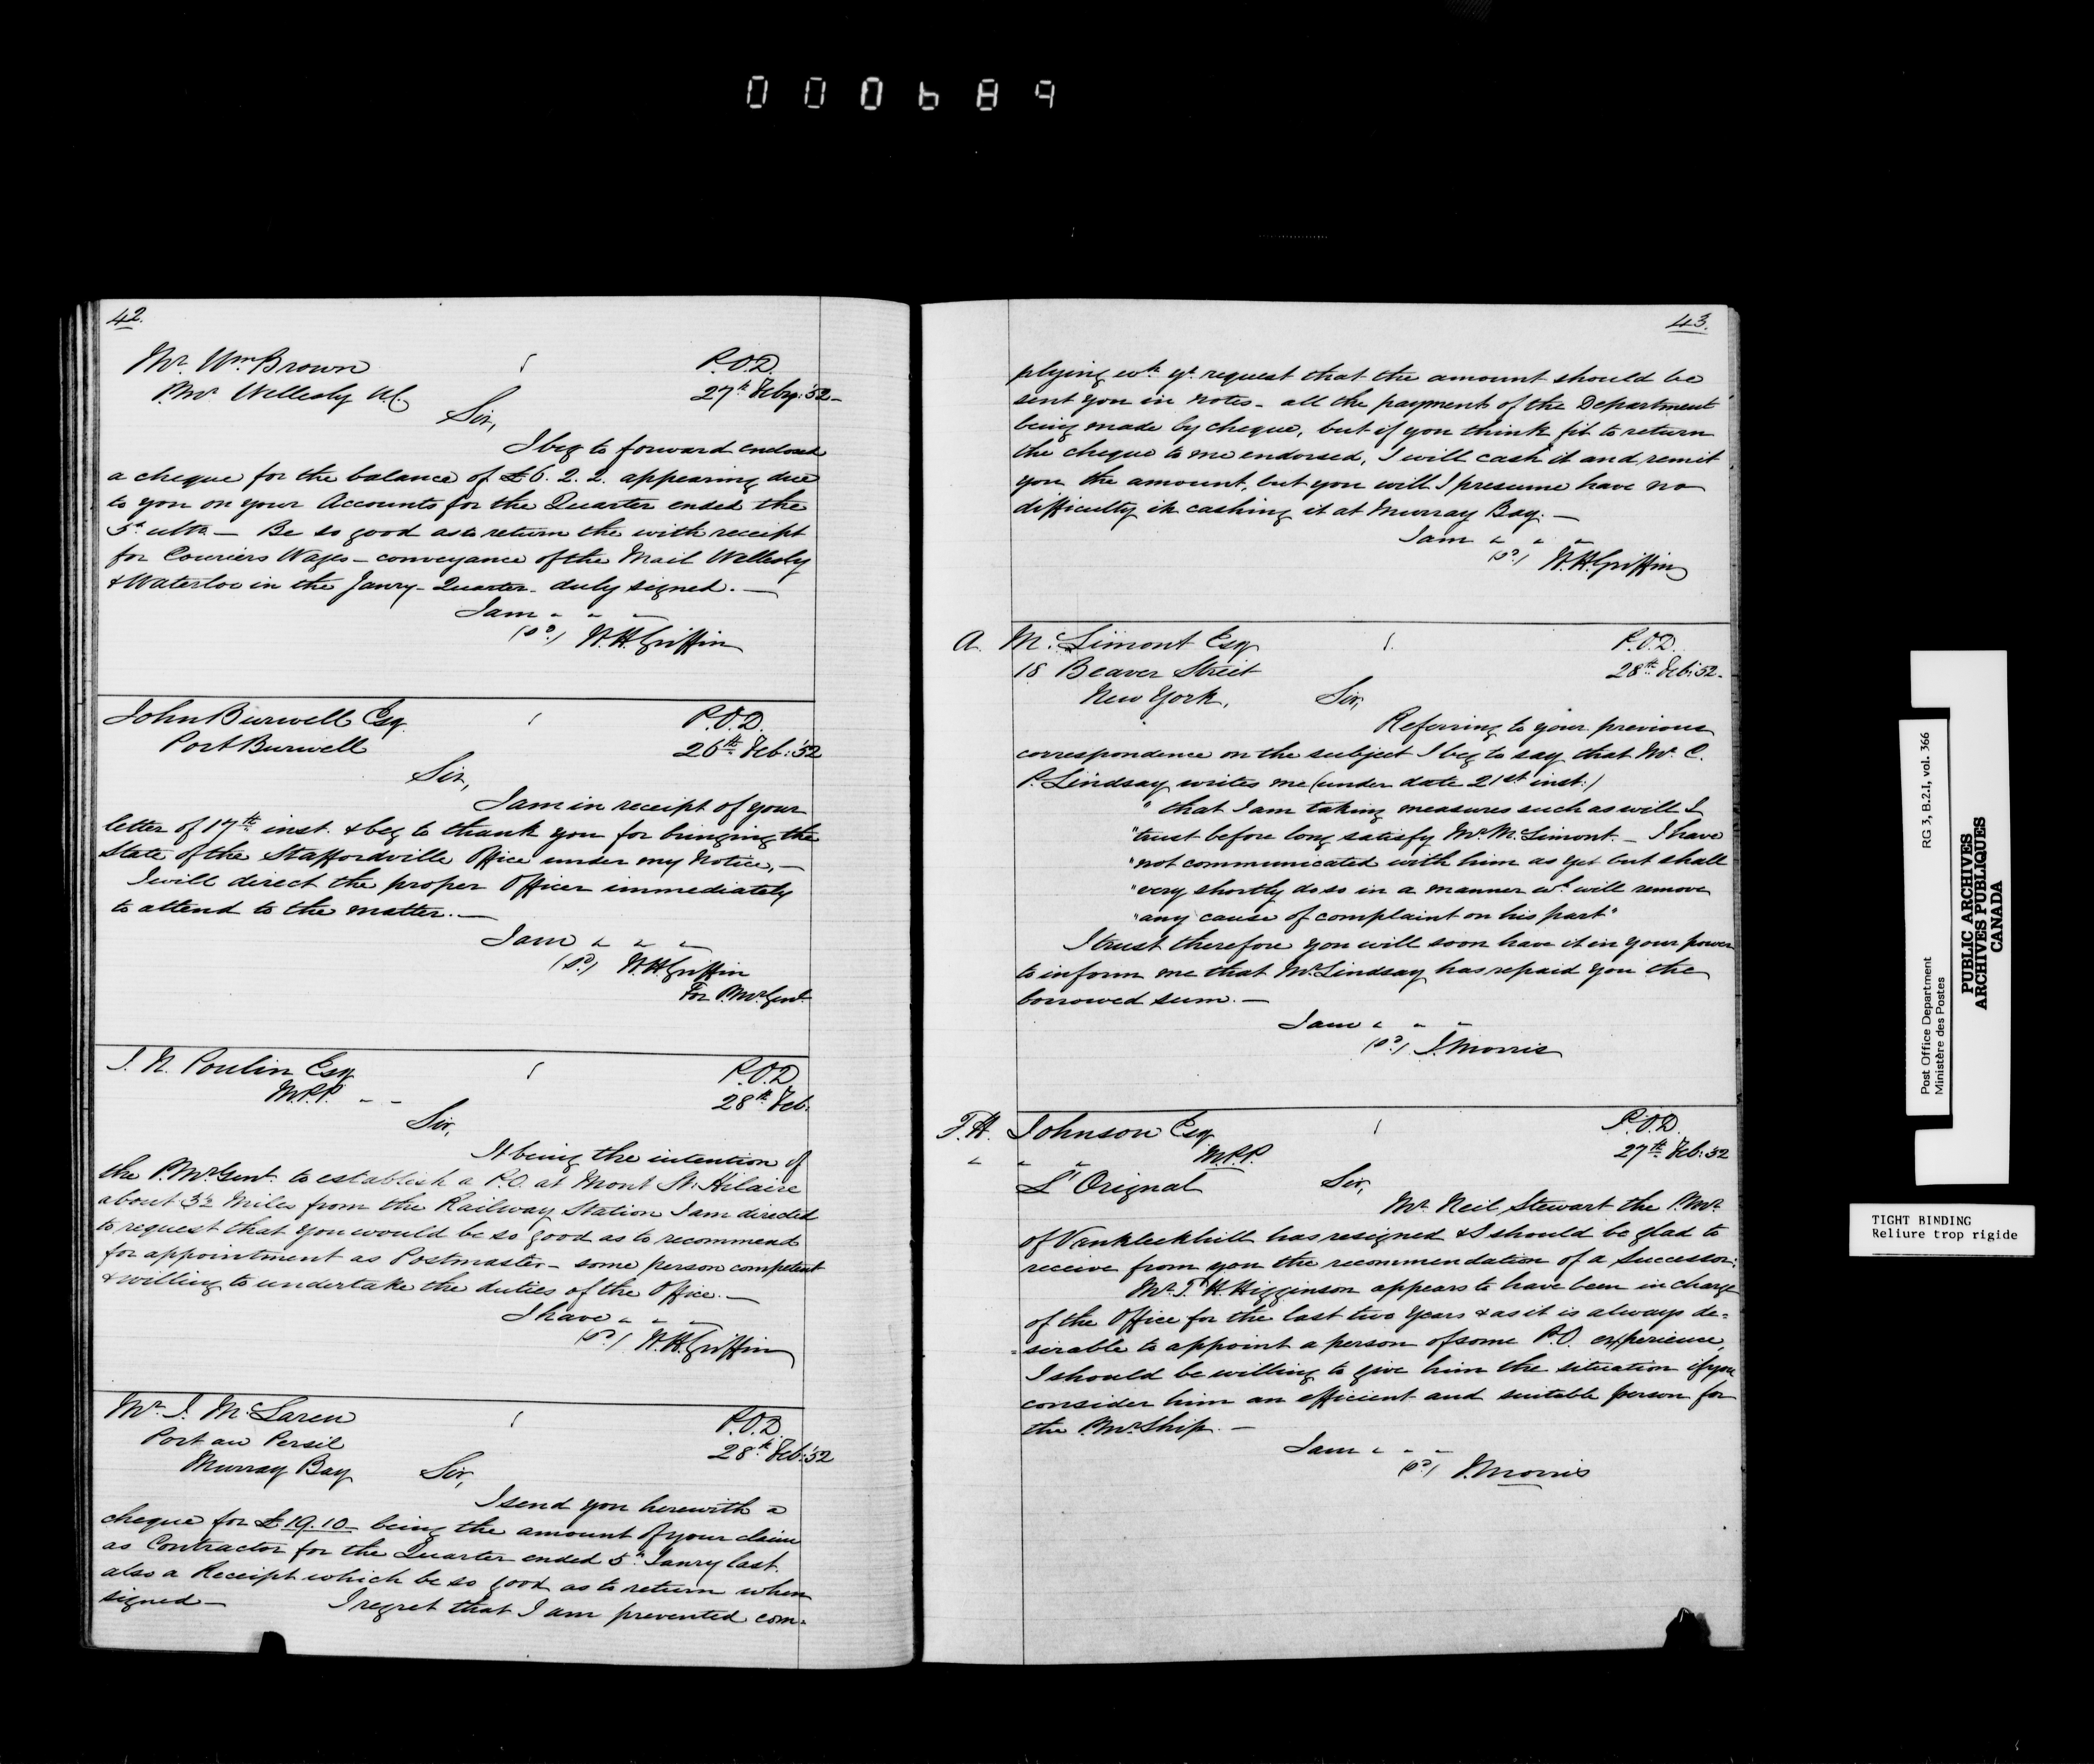 000689
42.
Mr. Wm. Brown P.O.D.
P.Mr Wellesly U.C. 27th Feby: 52-
Sir,
I beg to forward enclosed
a cheque for the balance of £6. 2. 2. appearing due
to you on your Accounts for the Quarter ended the
5th ulto. — Be so good as to return the with receipt
for Couriers Wages - conveyance of the Mail Wellesly
& Waterloo in the Janry - Quarter - duly signed. —
I am " " "
(sd.) W.H. Griffin
John Burwell Esq P.O.D.
Port Burwell 26th Feb: '52
Sir,
I am in receipt of your
letter of 17th inst. & beg to thank you for bringing the
State of the Staffordville Office under my Notice, —
I will direct the proper Officer immediately
to attend to the matter. —
I am " " "
(sd.) W.H. Griffin
For P.Mr Genl.
J. N. Poulin Esq P.O.D
M.P.P. - - 28th Feb.
Sir,
It being the intention of
the P.Mr Genl. to establish a P.O. at Mont St. Hilaire
about 3½ Miles from the Railway Station I am directed
to request that you would be so good as to recommend
for appointment as Postmaster - some person competent
& willing to undertake the duties of the Office. —
I have " " "
(sd.) W.H. Griffin
Mr. J. McLaren P.O.D.
Port au Persil 28th Feb: '52
Murray Bay Sir,
I send you herewith a
cheque for £19.10- being the amount of your claim
as Contractor for the Quarter ended 5th Janry last.
also a Receipt which be so good as to return when
signed — I regret that I am prevented com-
43.
plying wth yr request that the amount should be
sent you in notes - all the payments of the Department
being made by cheque, but if you think fit to return
the cheque to me endorsed, I will cash it and remit
you the amount, but you will I presume have no
difficulty in cashing it at Murray Bay. —
I am " " "
(sd.) W.H. Griffin
A. McLimont Esq P.O.D.
18 Beaver Street 28th Feb: 52-
New York, Sir,
Referring to your previous
correspondence on the subject I beg to say that Mr. C.
P. Lindsay writes me (under date 21st inst.)
"that I am taking measures such as will I
"trust before long satisfy Mr. McLimont. - I have
"not communicated with him as yet but shall
"very shortly do so in a manner wh will remove
"any cause of complaint on his part"
I trust therefore you will soon have it in your power
to inform me that Mr Lindsay has repaid you the
borrowed sum. —
I am " " "
(sd.) J. Morris
F.H. Johnson Esq P.O.D.
" " " M.P.P. 27th Feb: 52
L'Orignal Sir,
Mr. Neil Stewart the P.Mr
of Vankleekhill has resigned & I should be glad to
receive from you the recommendation of a Successor:
Mr. T. H. Higginson appears to have been in charge
of the Office for the last two Years & as it is always de=
=sirable to appoint a person of some P.O. experience,
I should be willing to give him the situation if you
consider him an efficient and suitable person for
the P.Mr Ship. —
I am " " "
(sd.) J. Morris
Post Office Department RG 3, B.2.I, vol. 366
Ministère des Postes
PUBLIC ARCHIVES
ARCHIVES PUBLIQUES
CANADA
TIGHT BINDING
Reliure trop rigide